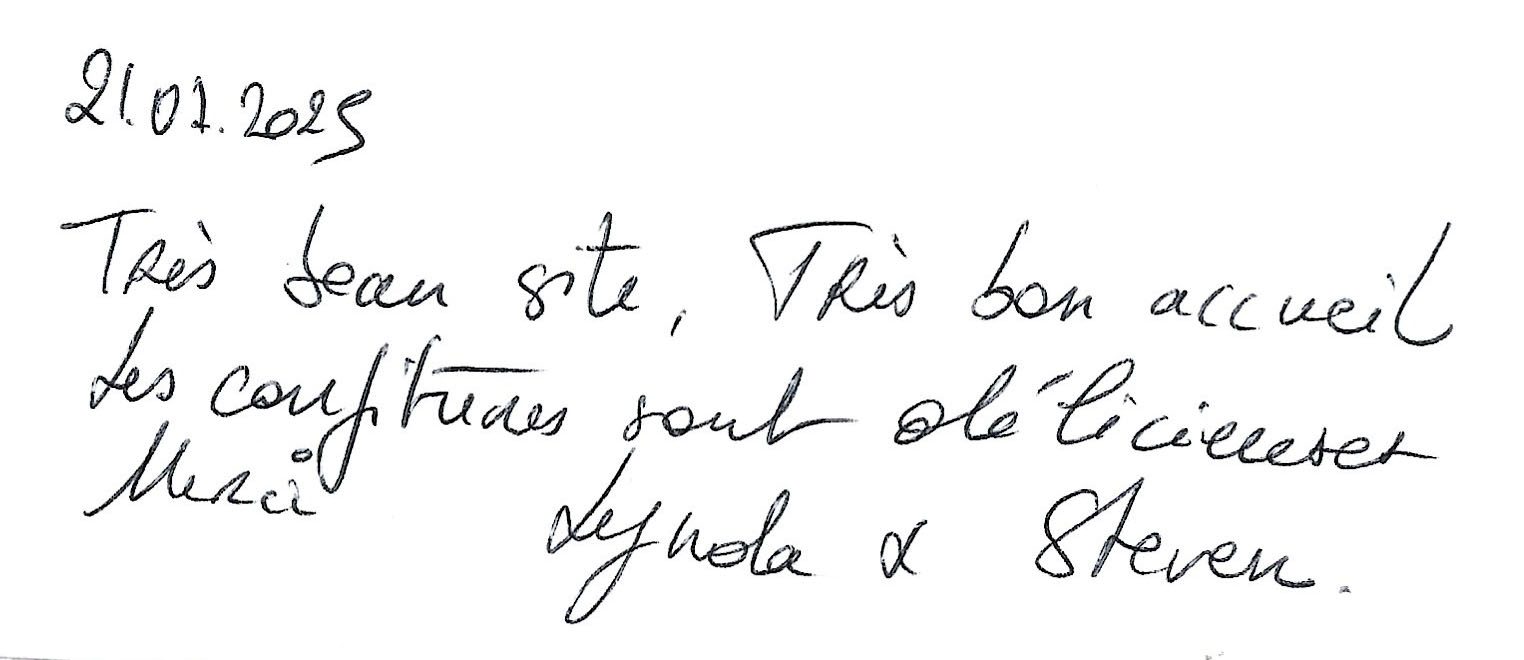 21.07.2025
Très beau site, Très bon accueil
Les confitures sont délicieuses
Merci Lynda & Steven.